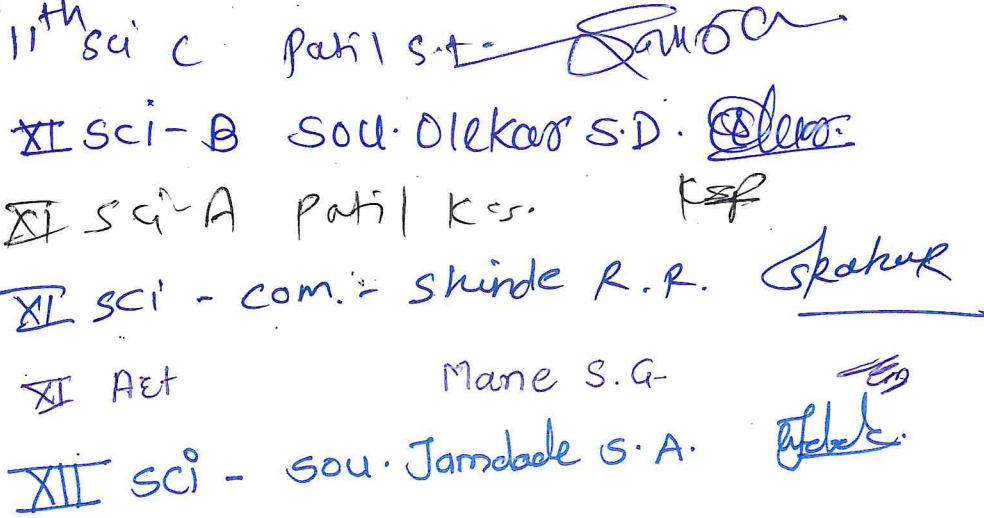 11th Sci C Patil S.t.
XI Sci - B Sou. Olekar S.D.
XI Sci - A Patil K.S. KSP
XI Sci - com. :- Shinde R.R.
XI Art Mane S.G.
XII Sci - Sou. Jamdade S.A.